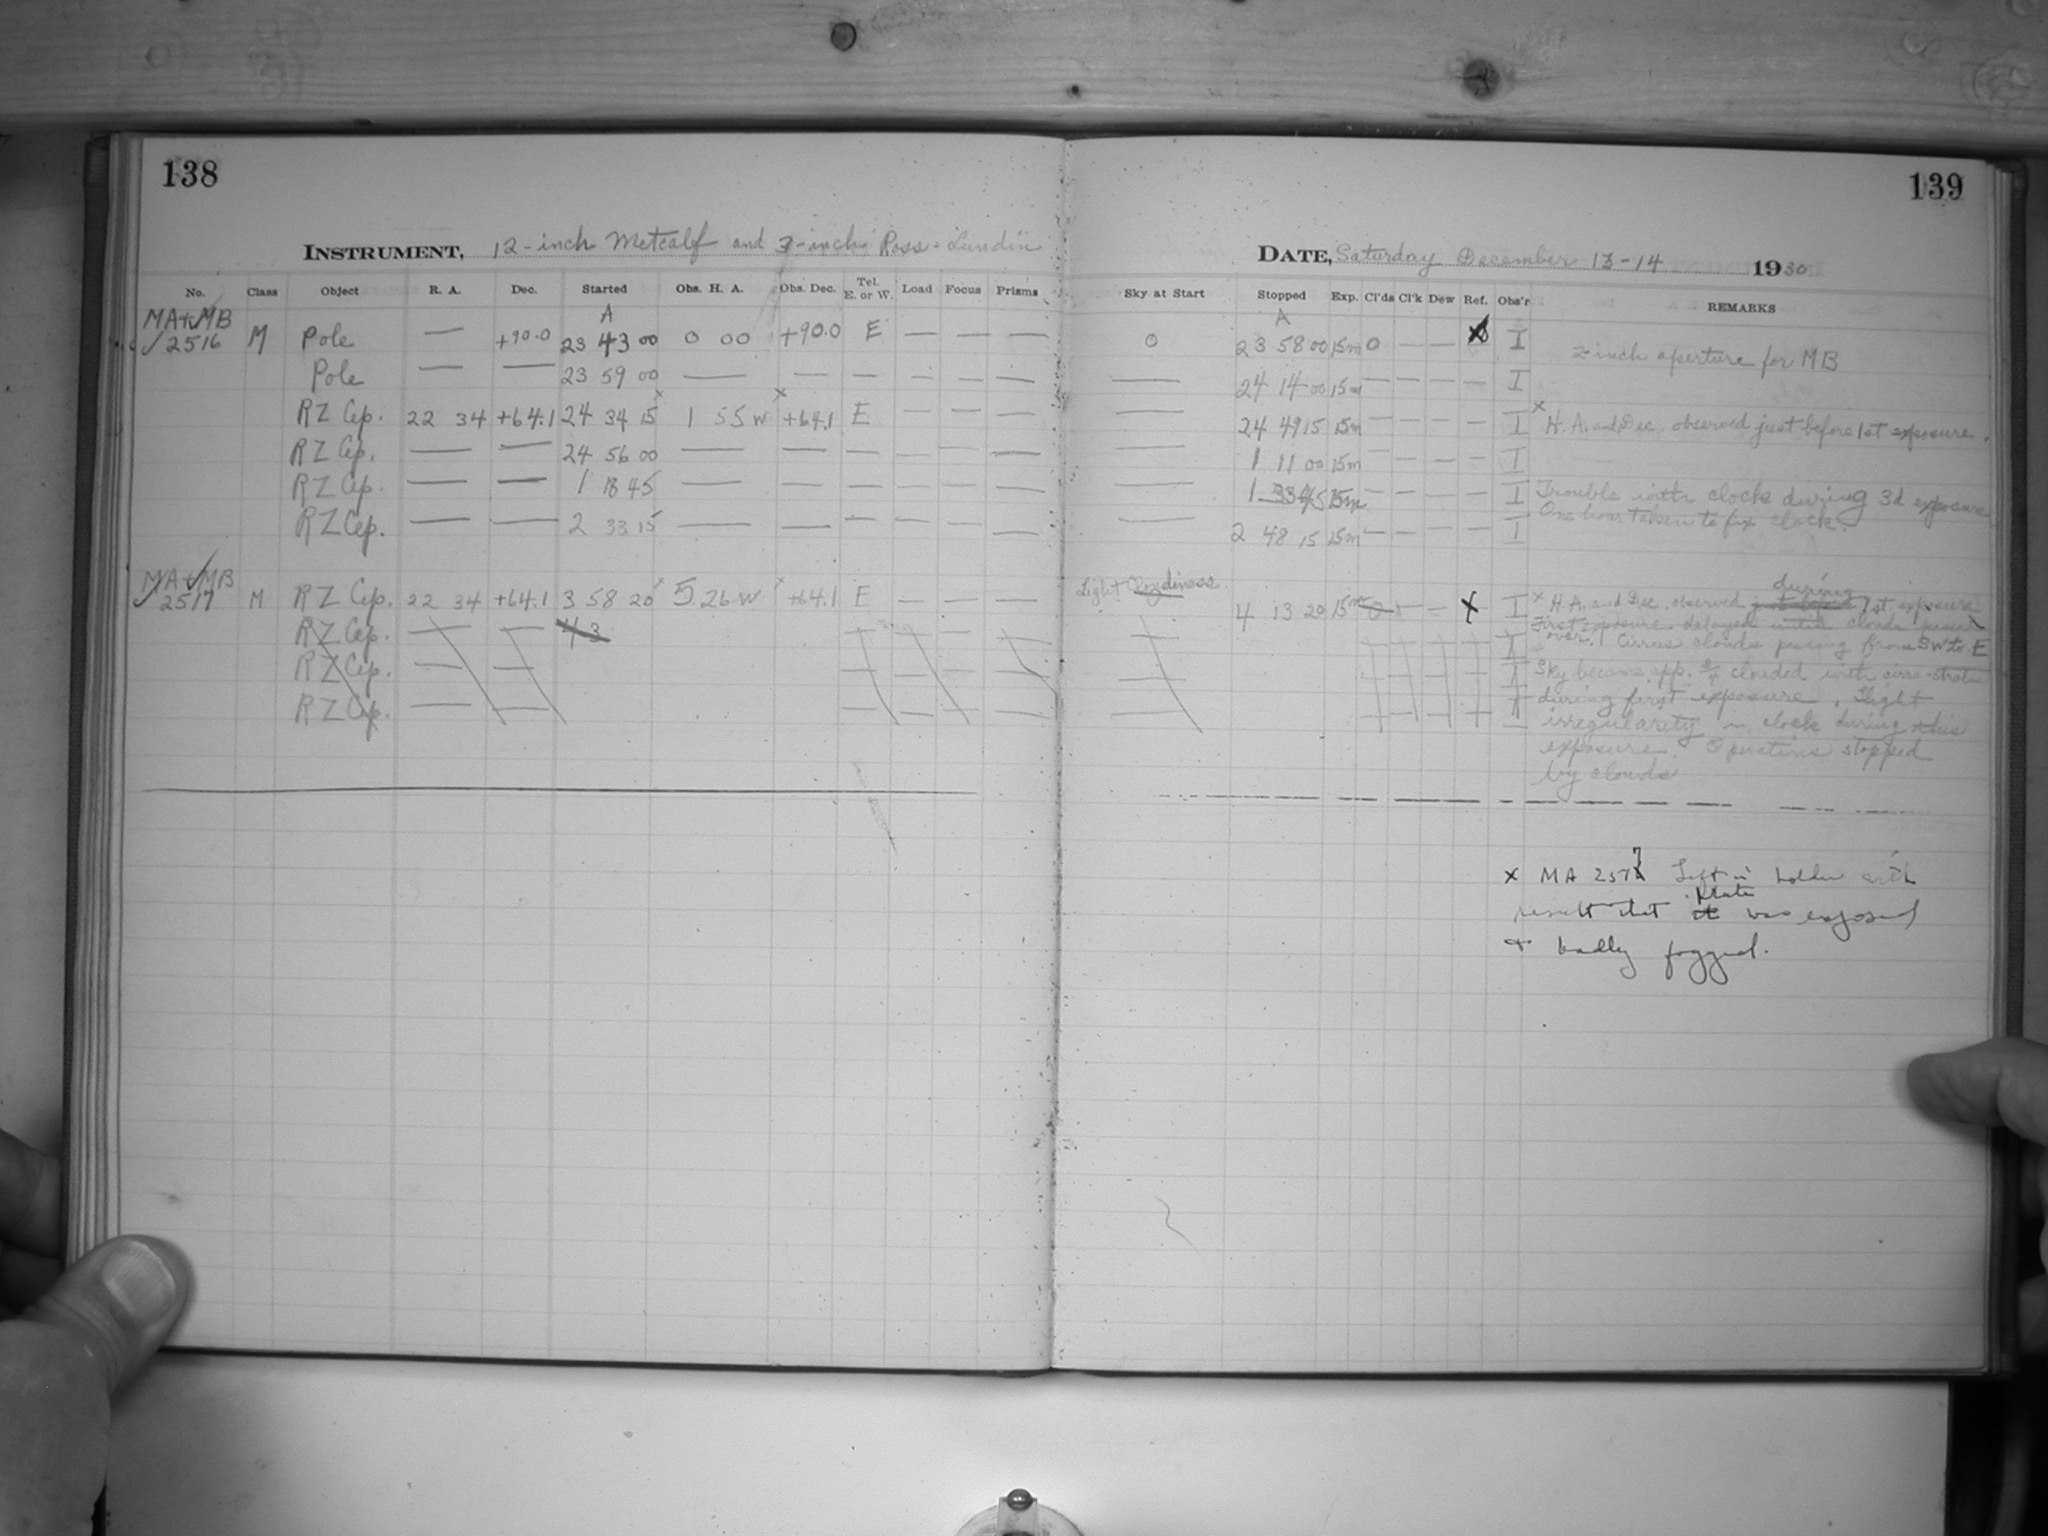 138
139
INSTRUMENT, 12-inch Metcalf and 3-inch Ross-Lundin
DATE, Saturday December 13-14 1930
No. Class Object R. A. Dec. Started Obs. H. A. Obs. Dec. Tel. E. or W. Load Focus Prisms Sky at Start Stopped Exp. Cl'ds Cl'k Dew Ref. Obs'r REMARKS
A A
MA+MB
2516 M Pole — +90.0 23 43 00 0 00 +90.0 E — — — 0 23 58 00 15m 0 — — I 2 inch aperture for MB
Pole — — 23 59 00 — — — — — — — 24 14 00 15m — — — — I
RZ Cep. 22 34 +64.1 24 34 15 x 1 55 W x +64.1 E — — — — 24 49 15 15m — — — — I x H. A. and Dec. observed just before 1st exposure.
RZ Cep. — — 24 56 00 — — — — — — — 1 11 00 15m — — — — I
RZ Cep. — — 1 18 45 — — — — — — — 1 33 45 15m — — — — I Trouble with clock during 3d exposure
RZ Cep. — — 2 33 15 — — — — — — — 2 48 15 15m — — — — I One hour taken to fix clock.
MA+MB
2517 M RZ Cep. 22 34 +64.1 3 58 20 x 5 26 W x +64.1 E — — — Light 4 13 20 15m — — x I x H. A. and Dec. observed during 1st exposure
First exposure delayed until clouds passed
RZ Cep. — — 4 3 — — — — — — — — — I over. Cirrus clouds passing from SW to E
RZ Cep. — — — — — — — — — — — I Sky became app. clouded with cirro-stratus
RZ Cep. — — — — — — — — — — — I during first exposure. Slight
irregularity in clock during this
exposure Operations stopped
by clouds
x MA 2517 Left in holder with
result that plate was exposed
+ badly fogged.